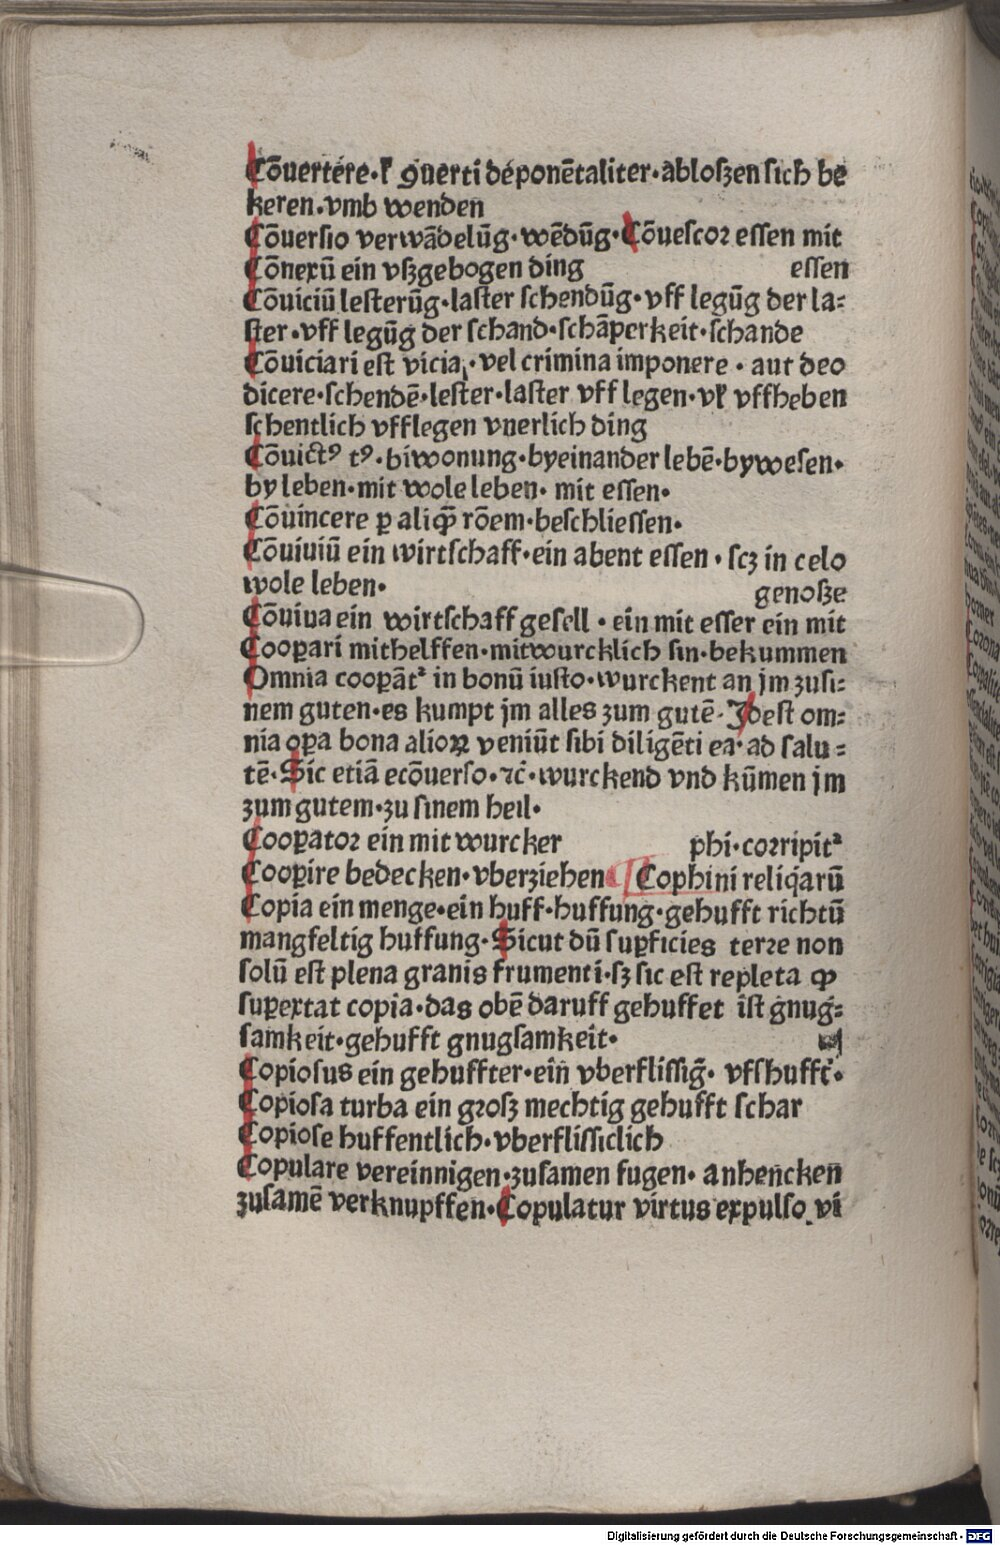 Cōuertere·ꝉ ꝯuerti deponētaliter·abloſzen ſich be
keren·vmb wenden
Cōuerſio verwādelūg·wēdūg·Cōueſcoꝛ eſſen mit
Cōnexū ein vſzgebogen ding eſſen
Cōuiciū leſterūg·laſter ſchendūg·vff legūg der la⸗
ſter·vff legūg der ſchand·ſchāperkeit·ſchande
Cōuiciari eſt vicia·vel crimina imponere·aut deo
dicere·ſchendē·leſter·laſter vff legen·vꝉ vffheben
ſchentlich vfflegen vnerlich ding
Cōuictꝰ tꝰ·biwonung·byeinander lebē·byweſen·
by leben·mit wole leben·mit eſſen·
Cōuincere ꝑ aliqͣ̄ rōem·beſchlieſſen·
Cōuiuiū ein wirtſchaff·ein abent eſſen·ſcz in celo
wole leben· genoſze
Cōuiua ein wirtſchaff geſell·ein mit eſſer ein mit
Cooꝑari mithelffen·mitwurcklich ſin·bekummen
Omnia cooꝑāt᷑ in bonū iuſto·wurckent an jm zuſi⸗
nem guten·es kumpt jm alles zum gutē·Ideſt om⸗
nia oꝑa bona alioꝝ veniūt ſibi diligēti ea·ad ſalu⸗
tē·Sic etiā ecōuerſo·ꝛc̄·wurckend vnd kūmen jm
zum gutem·zu ſinem heil·
Cooꝑatoꝛ ein mit wurcker phi·coꝛripit᷑
Cooꝑire bedecken·vberziehen ¶ Cophini reliqͣrū
Copia ein menge·ein huff·huffung·gehufft richtū
mangfeltig huffung·Sicut dū ſuꝑficies terꝛe non
ſolū eſt plena granis frumenti·ſz ſic eſt repleta ꝙ
ſuꝑextat copia·das obē daruff gehuffet iſt gnug⸗
ſamkeit·gehufft gnugſamkeit·
Copioſus ein gehuffter·ein vberfliſſig̃·vfſhufft·
Copioſa turba ein gꝛoſz mechtig gehufft ſchar
Copioſe huffentlich·vberfliſſiclich
Copulare vereinnigen·zuſamen fugen·anhencken
zuſamē verknupffen·Copulatur virtus expulſo vi
Digitalisierung gefördert durch die Deutsche Forschungsgemeinschaft - DFG